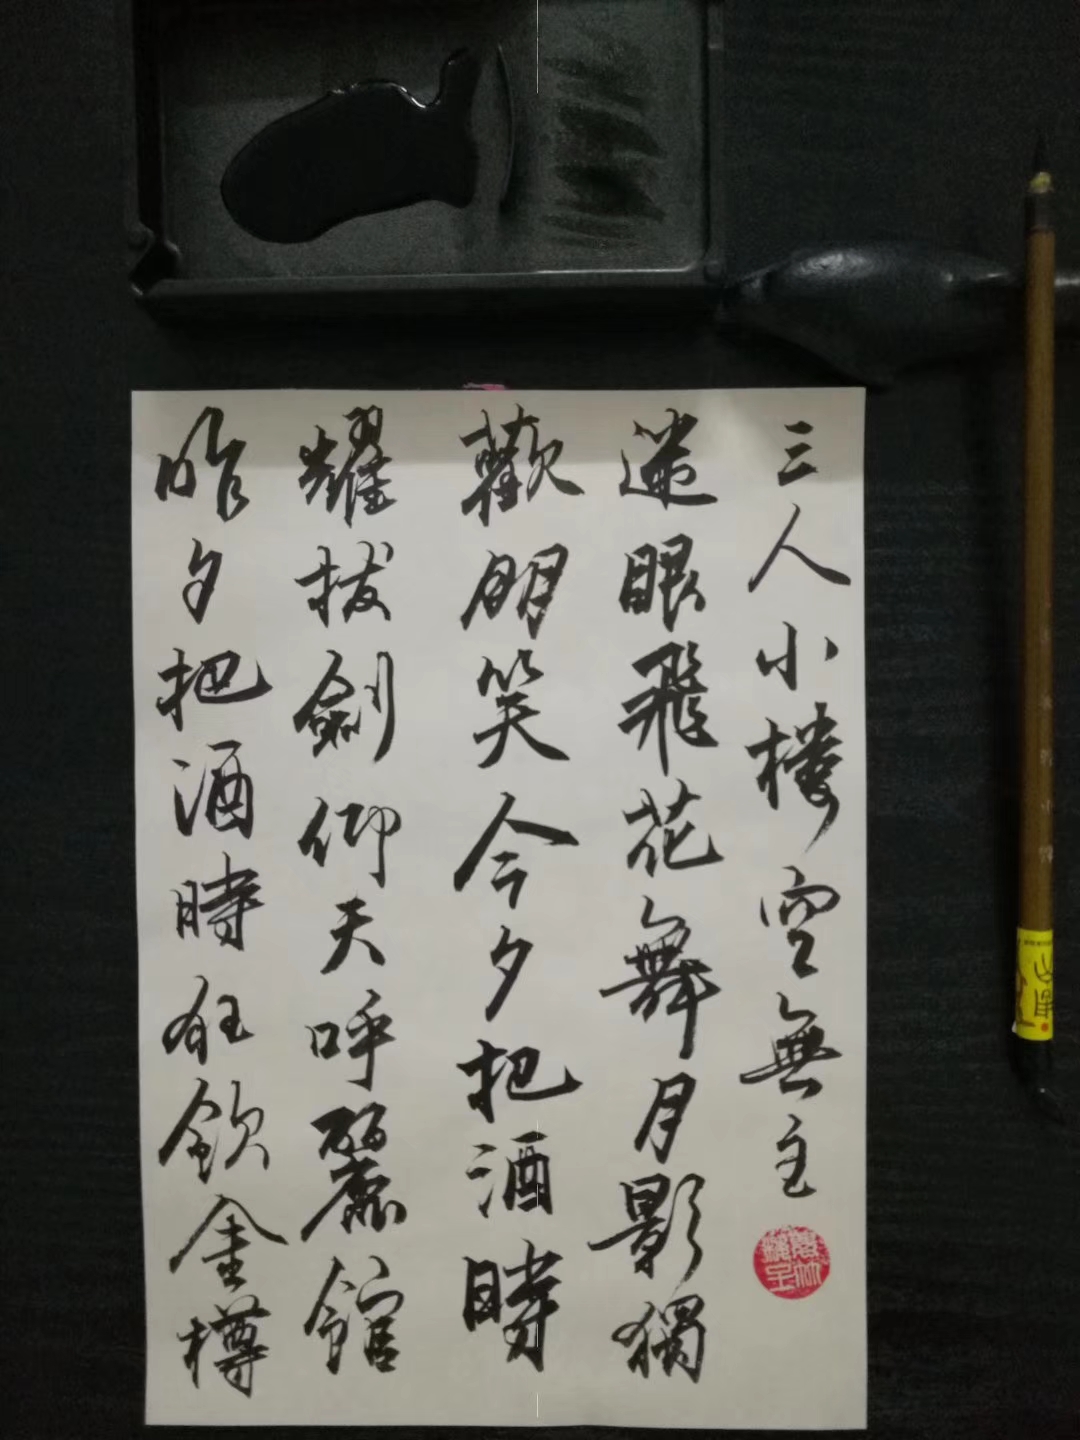 昨夕把酒時狂飲金樽
耀拔劍仰天呼麗館
歡朋笑今夕把酒時
迷眼飛花舞月影獨
三人小楼空無主